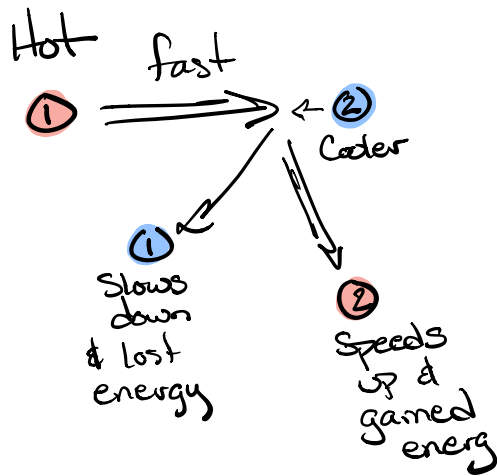 Hot
fast
1
2
Cooler
1
Slows
down
& lost
energy
2
Speeds
up &
gained
energ